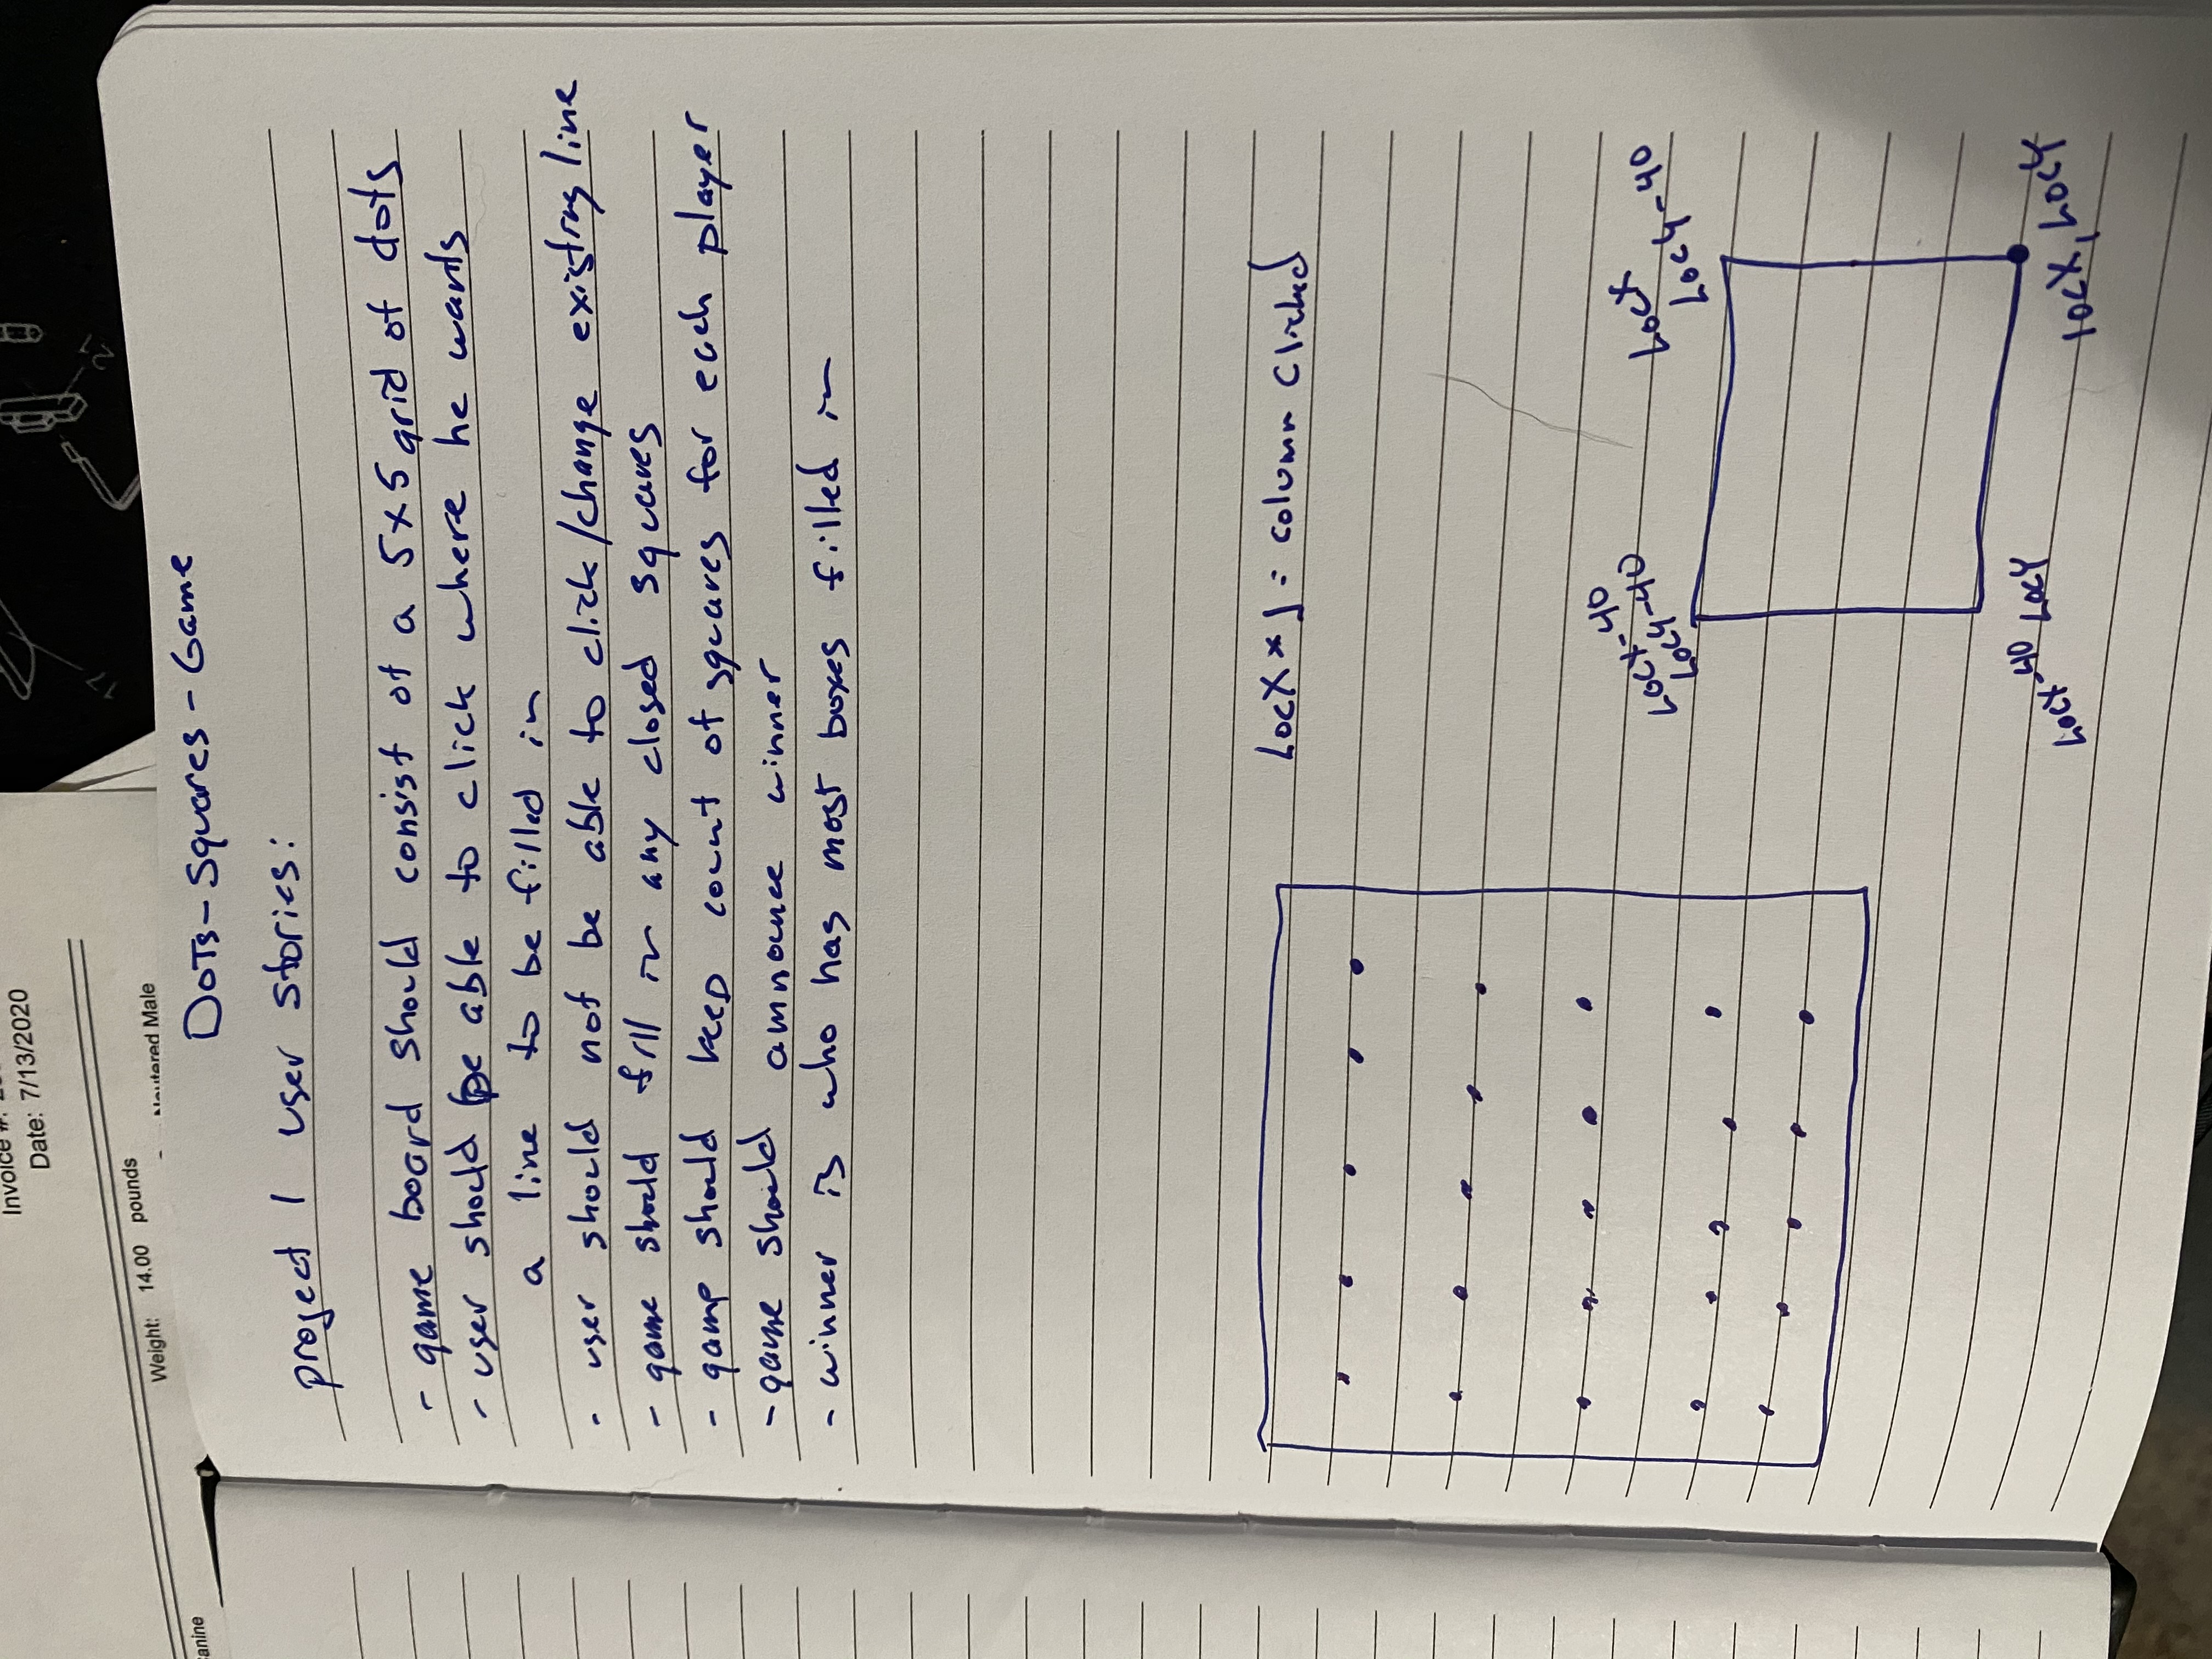 Invoice #:
Date: 7/13/2020
Weight: 14.00 pounds
Neutered Male
anine
17
21
DoTs-Squares-Game
project 1 user stories:
- game board should consist of a 5x5 grid of dots
- user should be able to click where he wants
a line to be filled in
- user should not be able to click/change existing line
- game should fill in any closed squares
- game should keep count of squares for each player
- game should amnounce winner
- winner is who has most boxes filled in
LocX * J = column Clicked
LocX-40
LocY-40
LocX
LocY-40
LocX-40 LocY
locX, LocY